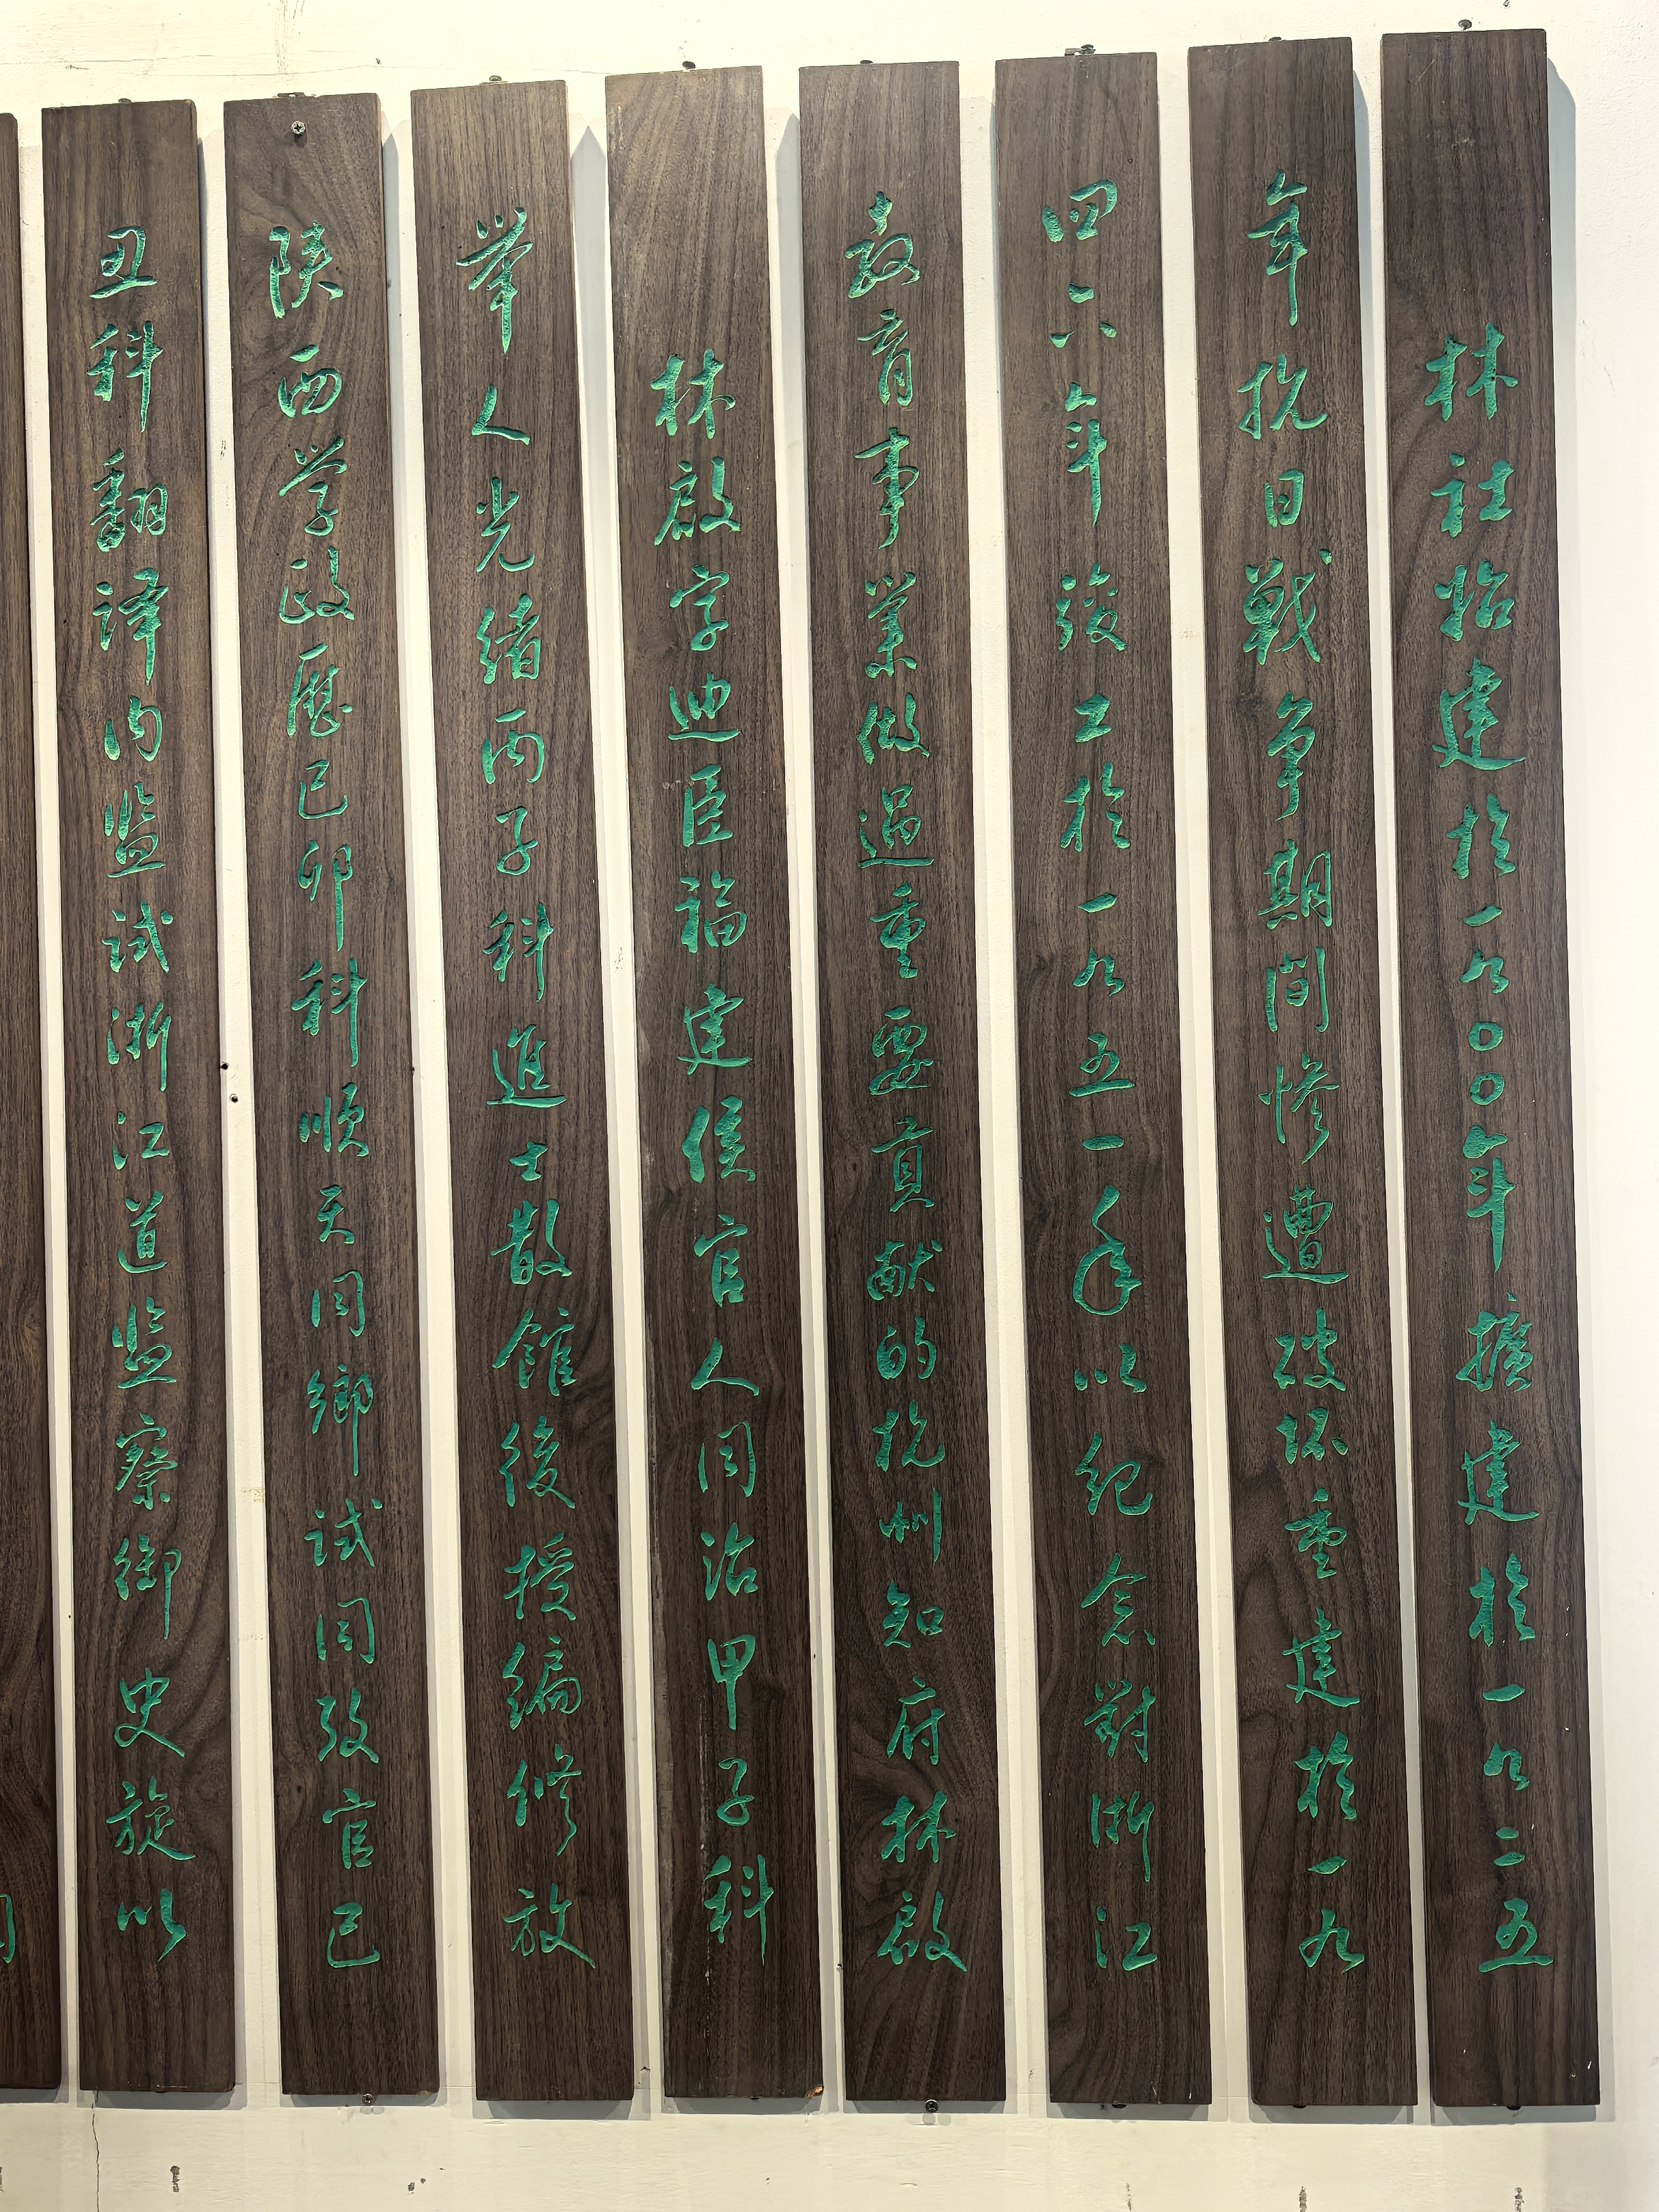 林社始建於一九〇〇年擴建於一九二五
年抗日戰争期間慘遭破坏重建於一九
四六年竣工於一九五一年以紀念對浙江
教育事業做過重要貢献的杭州知府林啟
林啟字迪臣福建侯官人同治甲子科
举人光緒丙子科進士散館後授編修放
陕西学政歷己卯科順天同鄉試同攷官己
丑科翻译内监試浙江道监察御史旋以